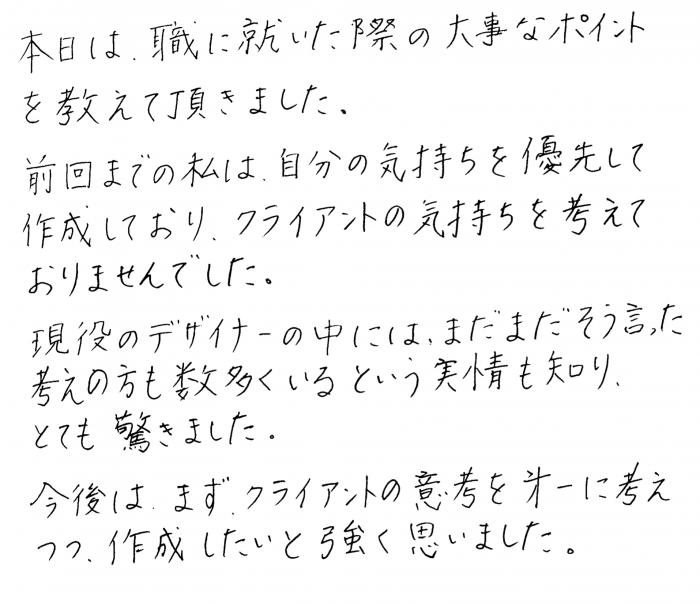 本日は、職に就いた際の大事なポイント
を教えて頂きました。
前回までの私は、自分の気持ちを優先して
作成しており、クライアントの気持ちを考えて
おりませんでした。
現役のデザイナーの中には、まだまだそう言った
考えの方も数多くいるという実情も知り、
とても驚きました。
今後は、まず、クライアントの意考を㐧一に考え
つつ、作成したいと強く思いました。